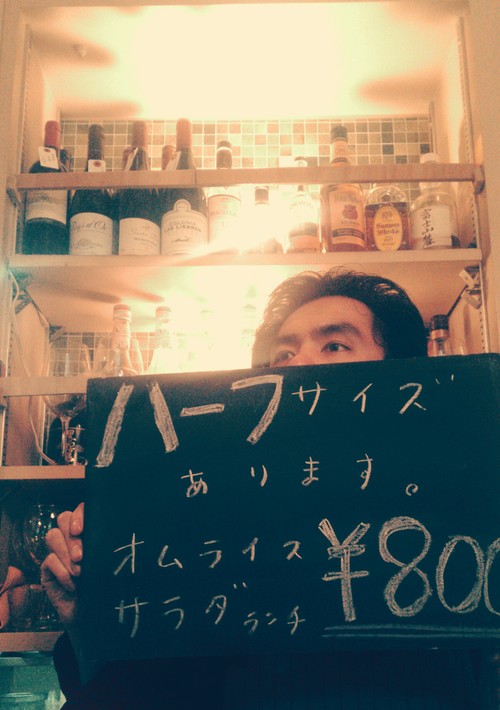 ハーフサイズ
あります。
オムライス ¥800
サラダランチ
富士山麓